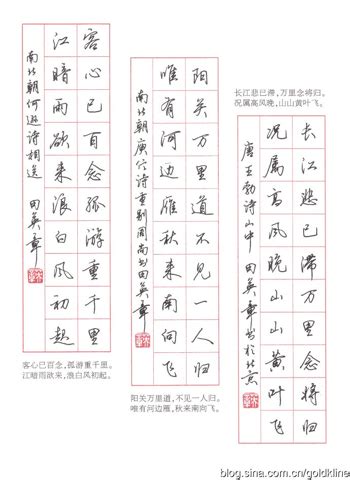 客心已百念孤游重千里
江暗雨欲来浪白风初起
南北朝何逊诗相送 田英章
客心已百念，孤游重千里。
江暗雨欲来，浪白风初起。
阳关万里道不见一人归
唯有河边雁秋来南向飞
南北朝庾信诗重别周尚书田英章
阳关万里道，不见一人归。
唯有河边雁，秋来南向飞。
长江悲已滞，万里念将归。
况属高风晚，山山黄叶飞。
长江悲已滞万里念将归
况属高风晚山山黄叶飞
唐王勃诗山中 田英章书于北京
blog.sina.com.cn/goldkline